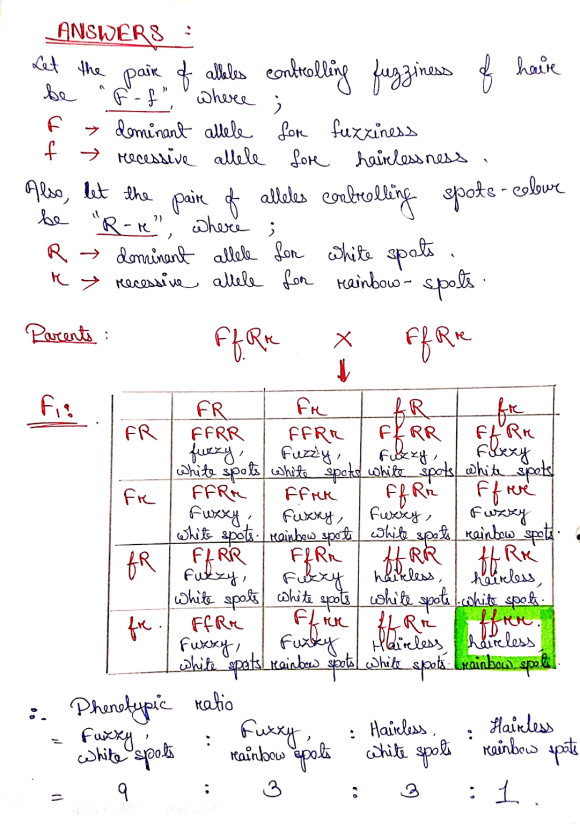 ANSWERS :
Let the pair of alleles controlling fuzziness of hair
be "F-f", where ;
F → dominant allele for fuzziness
f → recessive allele for hairlessness .
Also, let the pair of alleles controlling spots-colour
be "R-r", where ;
R → dominant allele for white spots .
r → recessive allele for rainbow- spots .
Parents : FfRr × FfRr
F1:
FR Fr fR fr
FR FFRR FFRr FfRR FfRr
fuzzy, Fuzzy, Fuzzy, Fuzzy
white spots white spots white spots white spots
Fr FFRr FFrr FfRr Ffrr
Fuzzy, Fuzzy, Fuzzy, Fuzzy
white spots. rainbow spots white spots rainbow spots.
fR FfRR FfRr ffRR ffRr
Fuzzy, Fuzzy hairless, hairless,
white spots white spots white spots white spots.
fr. FfRr Ffrr ffRr ffrr.
Fuzzy, Fuzzy Hairless hairless
white spots rainbow spots white spots rainbow spots.
∴ Phenotypic ratio
= Fuzzy, : Fuzzy, : Hairless. : Hairless
white spots rainbow spots white spots rainbow spots
= 9 : 3 : 3 : 1.